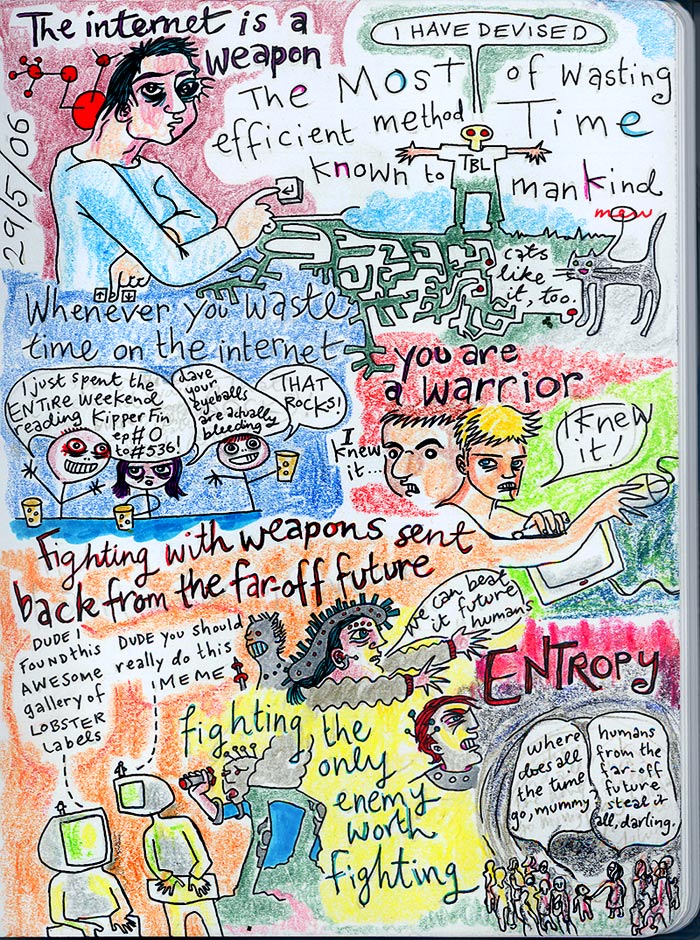 The internet is a
weapon
29/5/06
I HAVE DEVISED
The MOST of wasting
efficient method Time
known to mankind
TBL
mew
cats
like
it, too.
etc
Whenever you waste
time on the internet
you are
a warrior
I just spent the
ENTIRE weekend
reading Kipper Fin
ep#0
to#536!
Dave
your
eyeballs
are actually
bleeding
THAT
ROCKS!
I
knew
it...
I knew
it!
Fighting with weapons sent
back from the far-off future
we can beat
it future
humans
DUDE I
FOUND this
AWESOME
gallery of
LOBSTER
Labels
DUDE you should
really do this
MEME
ENTROPY
fighting the
only
enemy
worth
fighting
where
does all
the time
go, mummy?
humans
from the
far-off
future
steal it
all, darling.